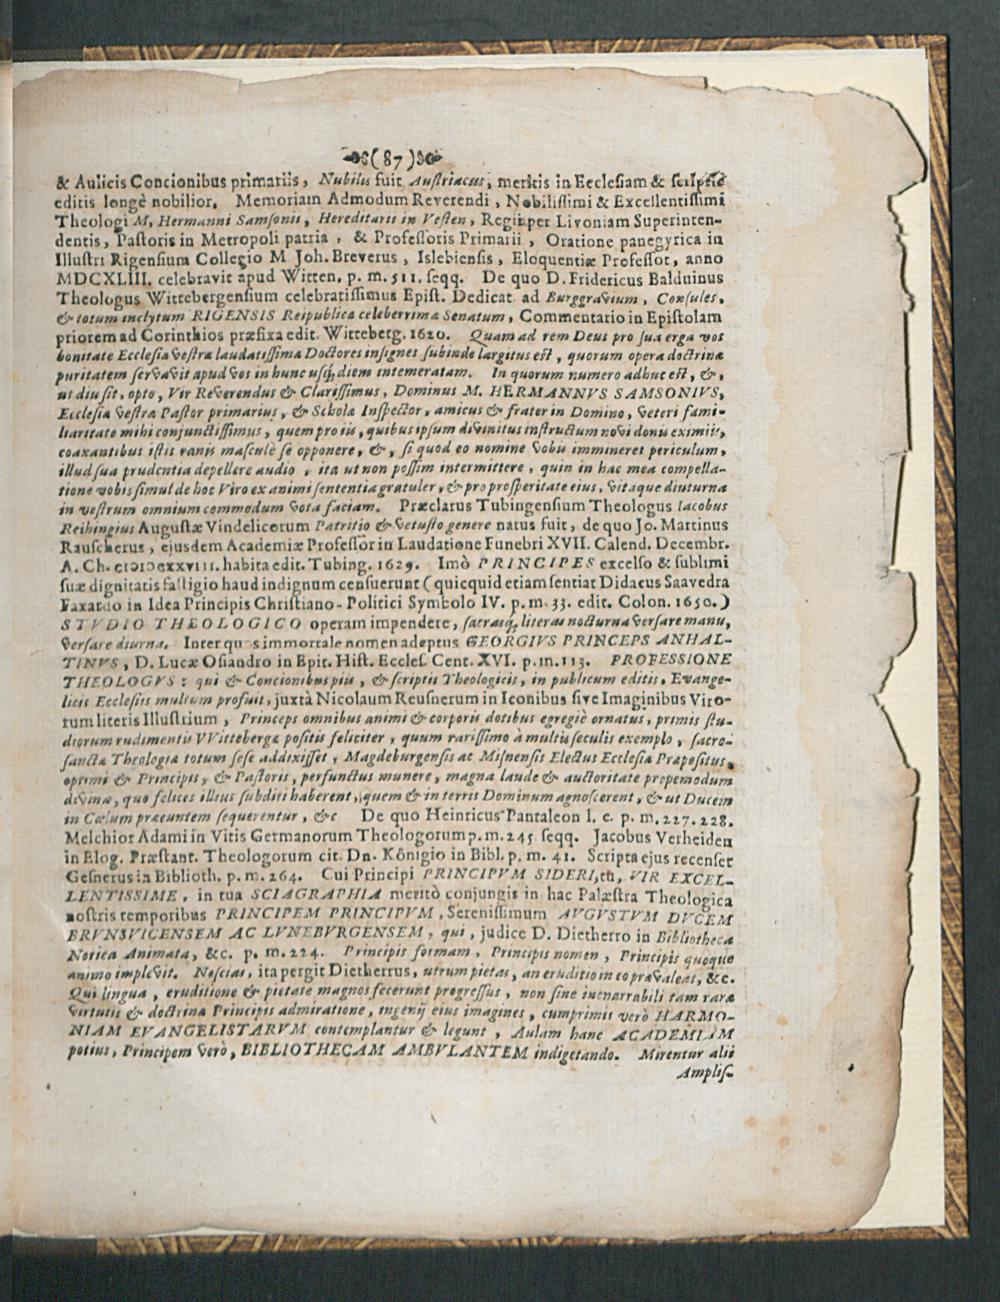 (87)
& Aulicis Concionibus primariis, Nubilus fuit Austriacus, meritis in Ecclesiam & scriptis
editis longè nobilior. Memoriam Admodum Reverendi, Nobilissimi & Excellentissimi
Theologi M, Hermanni Samsonii, Hereditarii in Vesten, Regii per Livoniam Superinten-
dentis, Pastoris in Metropoli patria, & Professoris Primarii, Oratione panegyrica in
Illustri Rigensium Collegio M Joh. Breverus, Islebiensis, Eloquentiæ Professor, anno
MDCXLIII. celebravit apud Witten. p. m. 511. seqq. De quo D. Fridericus Balduinus
Theologus Wittebergensium celebratissimus Epist. Dedicat ad Burggravium, Consules,
& totum inclytum RIGENSIS Reipublicæ celeberrimæ Senatum, Commentario in Epistolam
priorem ad Corinthios præfixa edit. Witteberg. 1620. Quam ad rem Deus pro sua erga vos
bonitate Ecclesiæ vestræ laudatissimæ Doctores insignes subinde largitus est, quorum opera doctrinæ
puritatem servavit apud vos in hunc usq; diem intemeratam. In quorum numero adhuc est, &,
ut diu sit, opto, Vir Reverendus & Clarissimus, Dominus M. HERMANNVS SAMSONIVS,
Ecclesiæ vestræ Pastor primarius, & Scholæ Inspector, amicus & frater in Domino, veteri fami-
liaritate mihi conjunctissimus, quem pro iis, quibus ipsum divinitus instructum novi donis eximiis,
coaxantibus istis ranis masculè se opponere, &, si quod eo nomine vobis immineret periculum,
illud sua prudentia depellere audio, ita ut non possim intermittere, quin in hac mea compella-
tione vobis simul de hoc Viro ex animi sententia gratuler, & pro prosperitate eius, vitaque diuturna
in vestrum omnium commodum vota faciam. Præclarus Tubingensium Theologus Iacobus
Reihingius Augustæ Vindelicorum Patritio & vetusto genere natus fuit, de quo Jo. Martinus
Rauscherus, ejusdem Academiæ Professor in Laudatione Funebri XVII. Calend. Decembr.
A. Ch. cIɔIɔcxxvIII. habita edit. Tubing. 1629. Imò PRINCIPES excelso & sublimi
suæ dignitatis fastigio haud indignum censuerunt (quicquid etiam sentiat Didacus Saavedra
Faxardo in Idea Principis Christiano-Politici Symbolo IV. p. m. 33. edit. Colon. 1650.)
STVDIO THEOLOGICO operam impendere, sacrasq; literas nocturna versare manu,
versare diurna. Inter quos immortale nomen adeptus GEORGIVS PRINCEPS ANHAL-
TINVS, D. Lucæ Osiandro in Epit. Hist. Eccles. Cent. XVI. p. m. 113. PROFESSIONE
THEOLOGVS: qui & Concionibus piis, & scriptis Theologicis, in publicum editis, Evange-
licis Ecclesiis multum profuit, juxtà Nicolaum Reusnerum in Iconibus sive Imaginibus Viro-
rum literis Illustrium, Princeps omnibus animi & corporis dotibus egregiè ornatus, primis stu-
diorum rudimentis VVittebergæ positis feliciter, quum rarissimo à multis seculis exemplo, sacro-
sanctæ Theologiæ totum sese addixisset, Magdeburgensis ac Misnensis Electus Ecclesiæ Præpositus,
optimi & Principis, & Pastoris, perfunctus munere, magna laude & auctoritate propemodum
divina, quo felices illius subditi haberent, quem & in terris Dominum agnoscerent, & ut Ducem
in Cœlum præeuntem sequerentur, &c De quo Heinricus Pantaleon l. c. p. m. 227. 228.
Melchior Adami in Vitis Germanorum Theologorum p. m. 245. seqq. Jacobus Verheiden
in Elog. Præstant. Theologorum cit. Dn. Königio in Bibl. p. m. 41. Scripta ejus recenset
Gesnerus in Biblioth. p. m. 264. Cui Principi PRINCIPVM SIDERI, tu, VIR EXCEL-
LENTISSIME, in tua SCIAGRAPHIA meritò conjungis in hac Palæstra Theologica
nostris temporibus PRINCIPEM PRINCIPVM, Serenissimum AVGVSTVM DVCEM
BRVNSVICENSEM AC LVNEBVRGENSEM, qui, judice D. Dietherro in Bibliotheca
Norica Animata, &c. p. m. 224. Principis formam, Principis nomen, Principis quoque
animo implevit. Nescias, ita pergit Dietherrus, utrum pietas, an eruditio in eo prævaleat, &c.
Qui lingua, eruditione & pietate magnos fecerunt progressus, non sine inenarrabili tam raræ
virtutis & doctrinæ Principis admiratione, ingenij eius imagines, cumprimis verò HARMO-
NIAM EVANGELISTARVM contemplantur & legunt, Aulam hanc ACADEMIAM
potius, Principem verò, BIBLIOTHECAM AMBVLANTEM indigetando. Mirentur alii
Amplis-